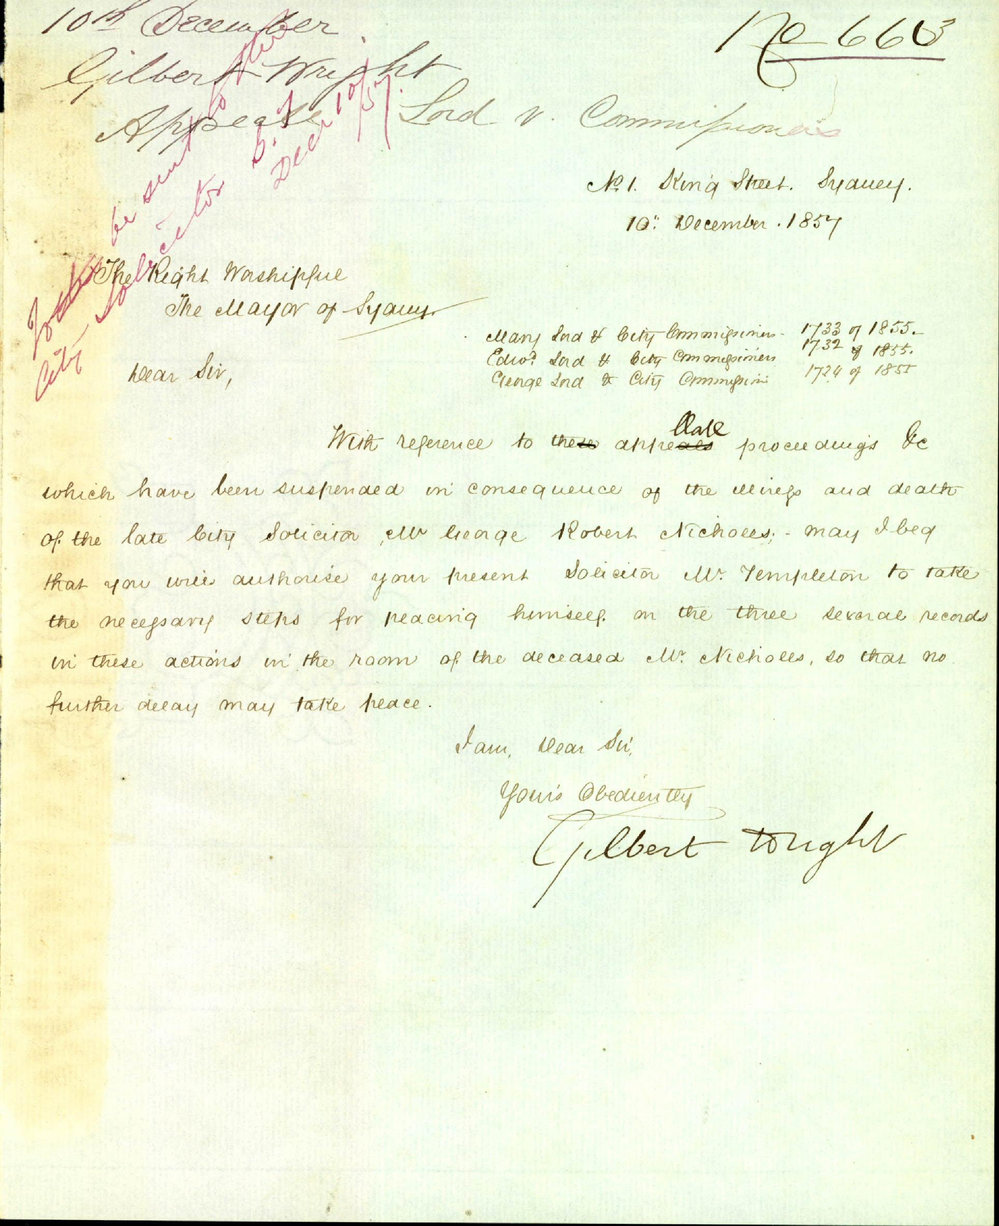 10th December
No 663
Gilbert Wright
Appeals Lord v. Commissioners
To be sent to the
City Solicitor
Dec 10/57.
No. 1. King Street. Sydney.
10th December. 1857
The Right Worshipful
The Mayor of Sydney.
Mary Lord & City Commissioners - 1733 of 1855.
Edwd. Lord & City Commissioners 1732 of 1855.
George Lord & City Commissioners 1734 of 1855
Dear Sir,
With reference to these appeals proceedings &c
which have been suspended in consequence of the illness and death
of the late City Solicitor, Mr George Robert Nicholls; - may I beg
that you will authorise your present Solicitor Mr. Templeton to take
the necessary steps for placing himself on the three several records
in these actions in the room of the deceased Mr. Nicholls, so that no
further delay may take place.
I am, Dear Sir,
Yours Obediently
Gilbert Wright